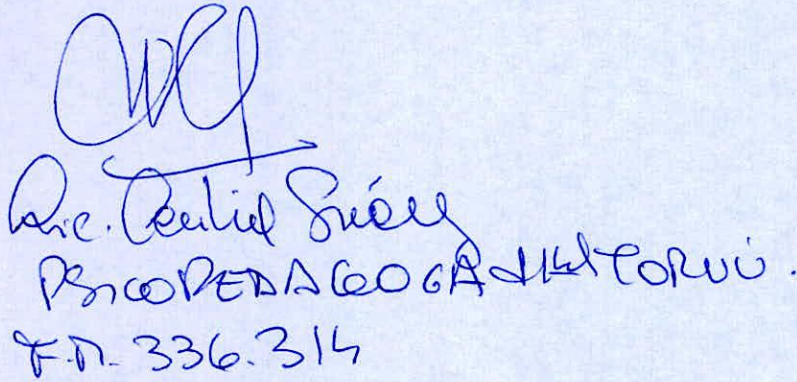 Lic. Cecilia Suárez
PSICOPEDAGOGA
F.M. 336.314